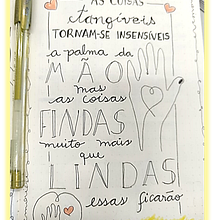 AS COISAS
tangíveis
TORNAM-SE INSENSÍVEIS
a palma da
MÃO
mas
as coisas
FINDAS
muito mais
que
LINDAS
essas ficarão